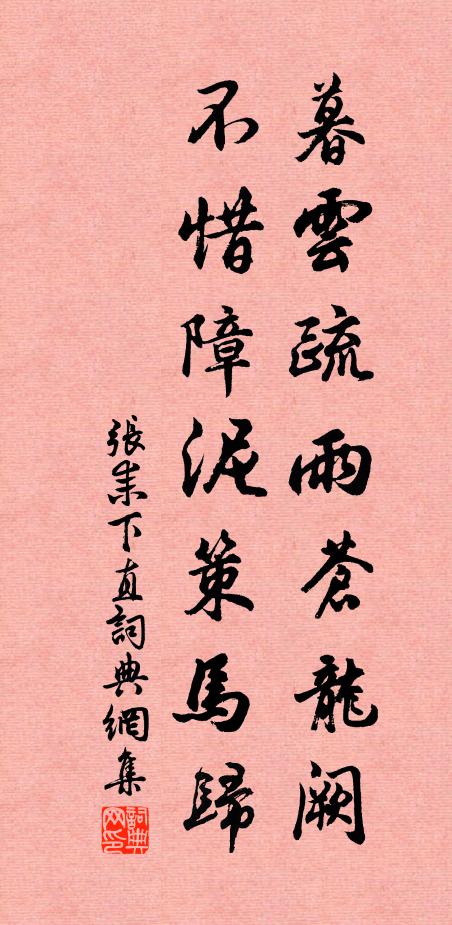 暮雲疏雨蒼龍闕
不惜障泥策馬歸
張耒下直詞典網集
詞典网印